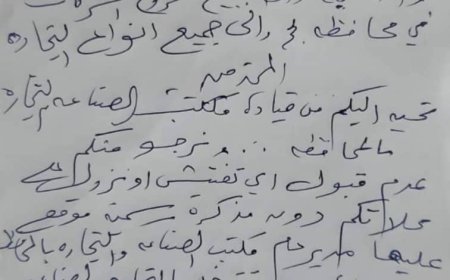 في محافظه والى جميع انواع التجاره
المحترمين
تحيه اليكم من قيادة مكتب الصناعه والتجاره
بالمحافظه ... ونرجو منكم
عدم قبول اي تفتيش او نزول على
محلاتكم دون مذكرة رسمية موقع
عليها مدير عام مكتب الصناعه والتجاره بالمحافظ